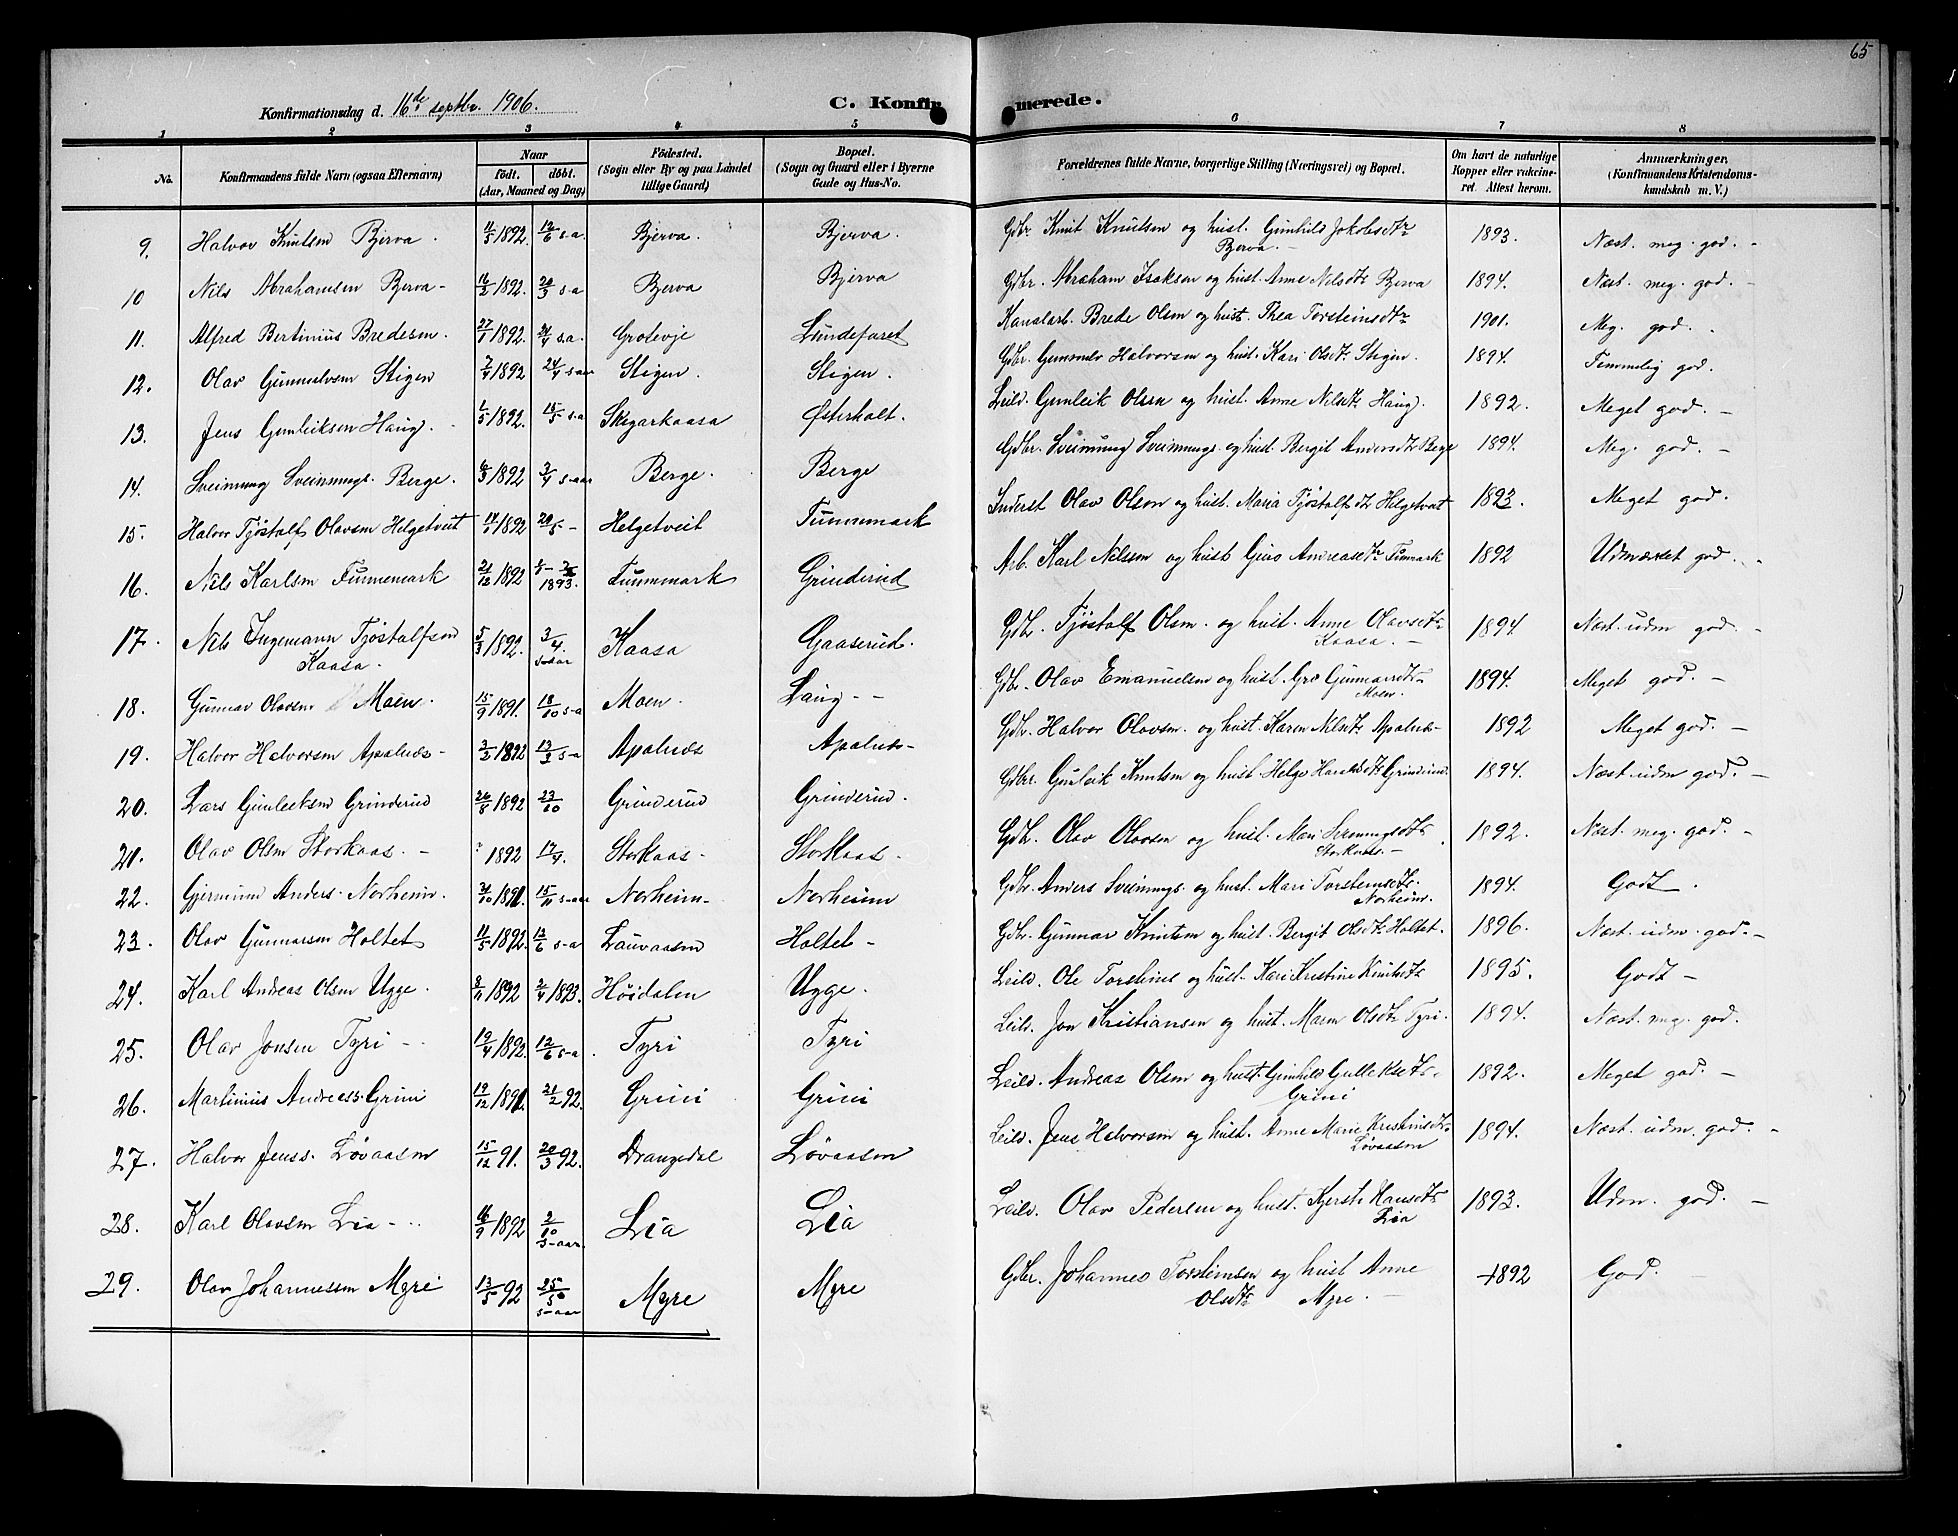 65
Konfirmationsdag d. 16de septbr. 1906. C. Konfirmerede.
1 2 3 4 5 6 7 8
No. Konfirmandens fulde Navn (ogsaa Efternavn) Naar født. døbt. (Aar, Maaned og Dag) Fødested. (Sogn eller By og paa Landet tillige Gaard) Bopæl. (Sogn og Gaard eller i Byerne Gade og Hus-No. Forældrenes fulde Navne, borgerlige Stilling (Næringsvei) og Bopæl. Om havt de naturlige Kopper eller vaccineret. Attest herom. Anmærkninger. (Konfirmandens Kristendomskundskab m. V.)
9. Halvor Knutsen Bjerva. 11/5 1892. 12/6 s.a. Bjerva. Bjerva. Gdbr. Knut Knutsen og hust. Gunhild Jakobsdtr Bjerva. 1893. Næst. meg. god.
10 Nils Abrahamsen Bjerva 16/2 1892. 20/3 s.a Bjerva Bjerva Gdbr. Abraham Isaksen og hust. Anne Nilsdtr Bjerva 1894. Næst. meg. god.
11. Alfred Bertinius Bredesen. 27/1 1892. 24/4 s.a. Grotevje Lundefaret Kanalarb. Brede Olsen og hust. Thea Torsteinsdtr 1901. Meg. god.
12. Olav Gunnulvsen Stigen 2/4 1892 24/4 s-aar Stigen. Stigen. Gdbr. Gunnulv Halvorsen og hust. Kari Olsdtr Stigen. 1894. Temmelig god.
13. Jens Gunleiksen Haug. 1/5 1892. 15/5 s.a Skogarkaasa Østerholt. Leild. Gunleik Olsen og hust. Anne Nilsdtr Haug. 1892. Meget god.
14. Sveinung Sveinungs. Berge. 6/3 1892 3/4 s-aar Berge. Berge Gdbr. Sveinung Sveinungs. og hust. Bergit Andersdtr Berge 1894. Meg. god.
15. Halvor Tjøstolf Olavsen Helgetveit 14/1 1892 20/5 Helgetveit Tunnemark Inderst Olav Olsen og hust. Maria Tjøstolfsdtr Helgetveit 1893. Meget god.
16. Nils Karlsen Tunnemark 21/12 1892 1893. Tunnmark Grinderud Arb. Karl Nilsen og hust. Andreasdtr Tunmark 1892 Udmærket god.
17. Nils Ingemann Tjøstolfsen Kaasa. 5/3 1892. 3/4. s-aar Kaasa Gaaserud. Gdbr. Tjøstolf Olsen. og hust. Anne Olavsdtr Kaasa. 1894 Næst. udm god.
18. Gunnar Olavsen Moen. 15/9 1891. 18/10 s-a Moen. Haug Gdbr. Olav Emanuelsen og hust. Gro Gunnarsdtr Moen. 1894. Meget god.
19. Halvor Halvorsen Apalnæs 3/2 1892 13/3 s-a Apalnæs Apalnæs Gdbr. Halvor Olavsen. og hust. Karen Nilsdtr Apalnæs 1892 Meget god.
20. Lars Gunleiksen Grinderud 26/8 1892 23/10 Grinderud Grinderud. Gdbr. Gunleik Knutsen og hust. Helge Haraldsdtr Grinderud. 1894. Næst udm god.
21. Olav Olsen Storkaas. ? 1892 17/4. Storkaas. Storkaas. Gdbr. Olav Olavsen og hust. Mari Sveinungsdtr Storkaas. 1892. Næst. meg. god.
22. Gjermund Anders. Norheim. 31/10 1891. 15/11 s-aar Norheim Norheim Gdbr. Anders Sveinungs. og hust. Mari Torsteinsdtr. Norheim. 1894. Godt.
23. Olav Gunnarsen Holtet 11/5 1892. 12/6 s-a Lauvaasen Holtet Gdbr. Gunnar Knutsen og hust. Bergit Olsdtr Holtet. 1896. Næst. udm. god.
24. Karl Andreas Olsen Ugge. 8/11 1892 2/4 1893. Høidalen Ugge. Leild. Ole Torstens og hust. Kari Kristine Knutsdtr 1895. Godt
25. Olav Jonsen Tyri 19/4 1892. 12/6 s-a. Tyri Tyri Leild. Jon Kristiansen og hust. Maren Olsdtr Tyri. 1894. Næst. meg. god.
26. Martinius Andreass. Grini 19/12 1891. 21/2 92. Grini Grini Leild. Andreas Olsen og hust. Gunhild Gulleiksdtr. Grini 1892. Meget god.
27. Halvor Jenss. Løvaasen 15/12 91. 20/3 92. Drangedal Løvaasen Leild. Jens Halvorsen og hust. Anne Marie Kristinsdtr. Løvaasen 1894. Næst. udm. god.
28. Karl Olavsen Lia 16/9 1892 2/10 s-aar. Lia Lia Leild. Olav Pedersen og hust. Kjersti Hansdtr Lia 1893. Udm. god.
29. Olav Johannessen Myre 13/5 92 25/5 s-aar Myre Myre Gdbr. Johannes Torsteinsen og hust Anne Olsdtr Myre. 1892 God.